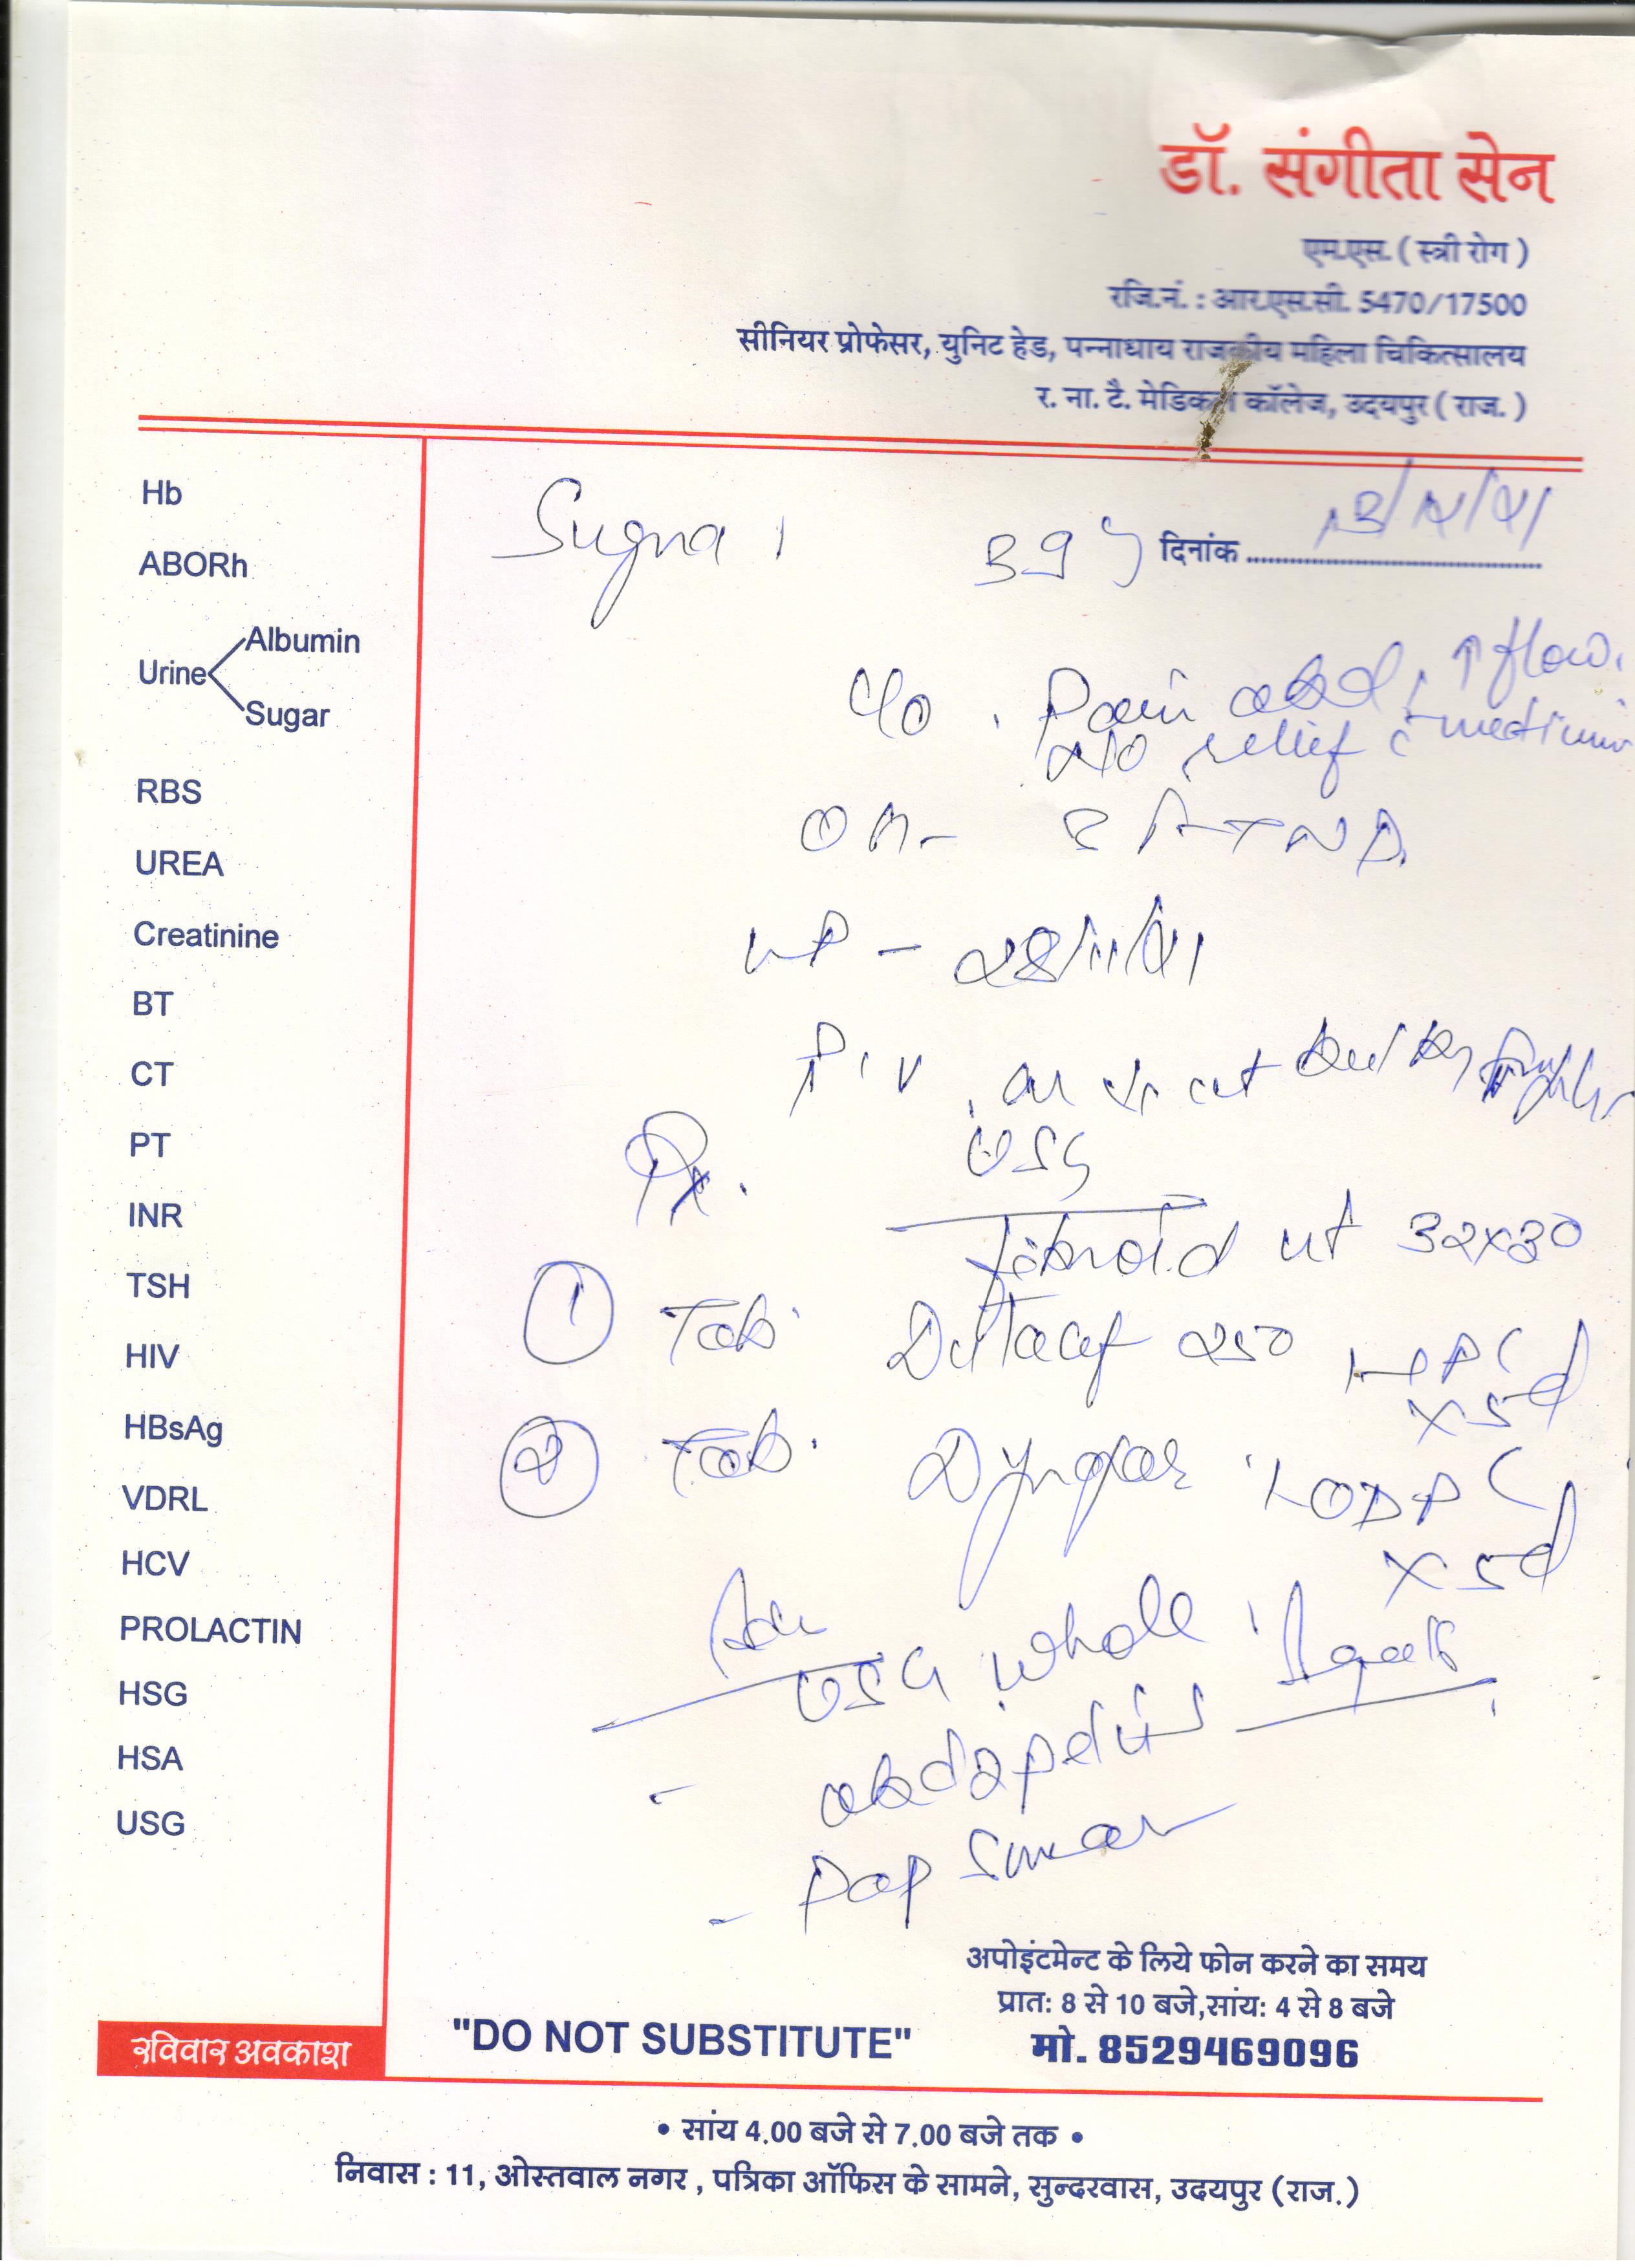 डॉ. संगीता सेन
एम.एस. ( स्त्री रोग )
रजि.नं. : आर.एस.सी. 5470/17500
सीनियर प्रोफेसर, युनिट हेड, पन्नाधाय राजकीय महिला चिकित्सालय
र. ना. टै. मेडिकल कॉलेज, उदयपुर ( राज. )
Hb
ABORh
Urine
Albumin
Sugar
RBS
UREA
Creatinine
BT
CT
PT
INR
TSH
HIV
HBsAg
VDRL
HCV
PROLACTIN
HSG
HSA
USG
Sugna 39 दिनांक
C/o Pain abd, ↑ flow.
No relief c medicine
P/V
Rx. USG
fibroid ut 32x30
1 Tab. 250
x 5d
2 Tab.
x 5d
Adv
USG whole
abd & pelvis
- Pap Smear
अपोइंटमेन्ट के लिये फोन करने का समय
प्रात: 8 से 10 बजे,सांय: 4 से 8 बजे
"DO NOT SUBSTITUTE" मो. 8529469096
रविवार अवकाश
• सांय 4.00 बजे से 7.00 बजे तक •
निवास : 11, ओस्तवाल नगर , पत्रिका ऑफिस के सामने, सुन्दरवास, उदयपुर (राज.)